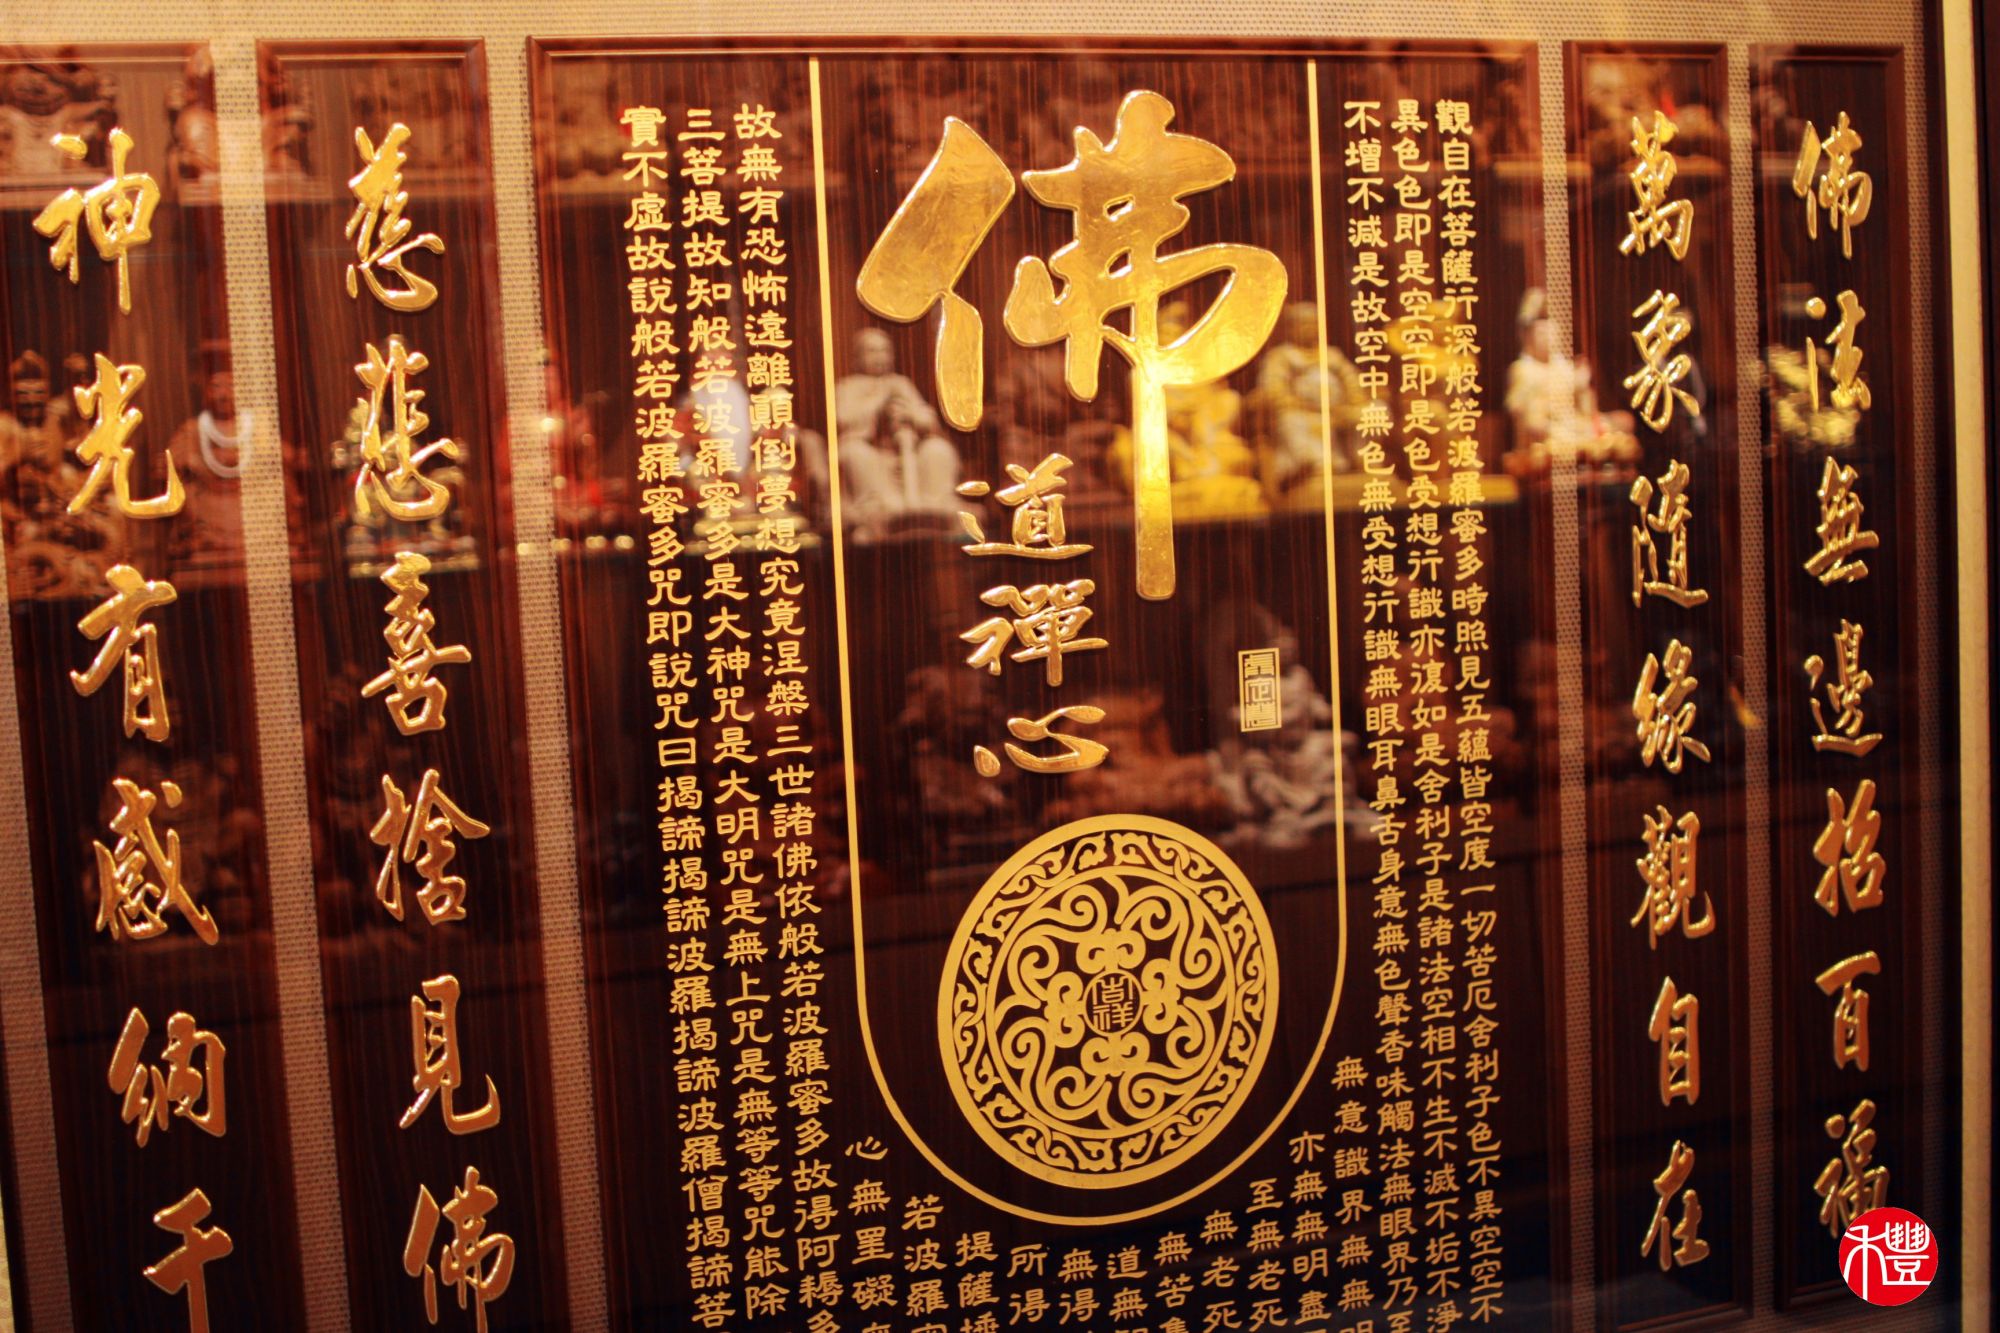 佛法無邊招百福
萬象隨緣觀自在
觀自在菩薩行深般若波羅蜜多時照見五蘊皆空度一切苦厄舍利子色不異空空不
異色色即是空空即是色受想行識亦復如是舍利子是諸法空相不生不滅不垢不淨
不增不減是故空中無色無受想行識無眼耳鼻舌身意無色聲香味觸法無眼界乃至
無意識界無無明
亦無無明盡
至無老死
無老死
無苦集
道無
無得
所得
提薩埵
若波羅蜜
心無罣礙無
佛
道禪心
吉祥
故無有恐怖遠離顛倒夢想究竟涅槃三世諸佛依般若波羅蜜多故得阿耨多
三菩提故知般若波羅蜜多是大神咒是大明咒是無上咒是無等等咒能除
實不虛故說般若波羅蜜多咒即說咒曰揭諦揭諦波羅揭諦波羅僧揭諦菩
慈悲喜捨見佛
神光有感納千
禮